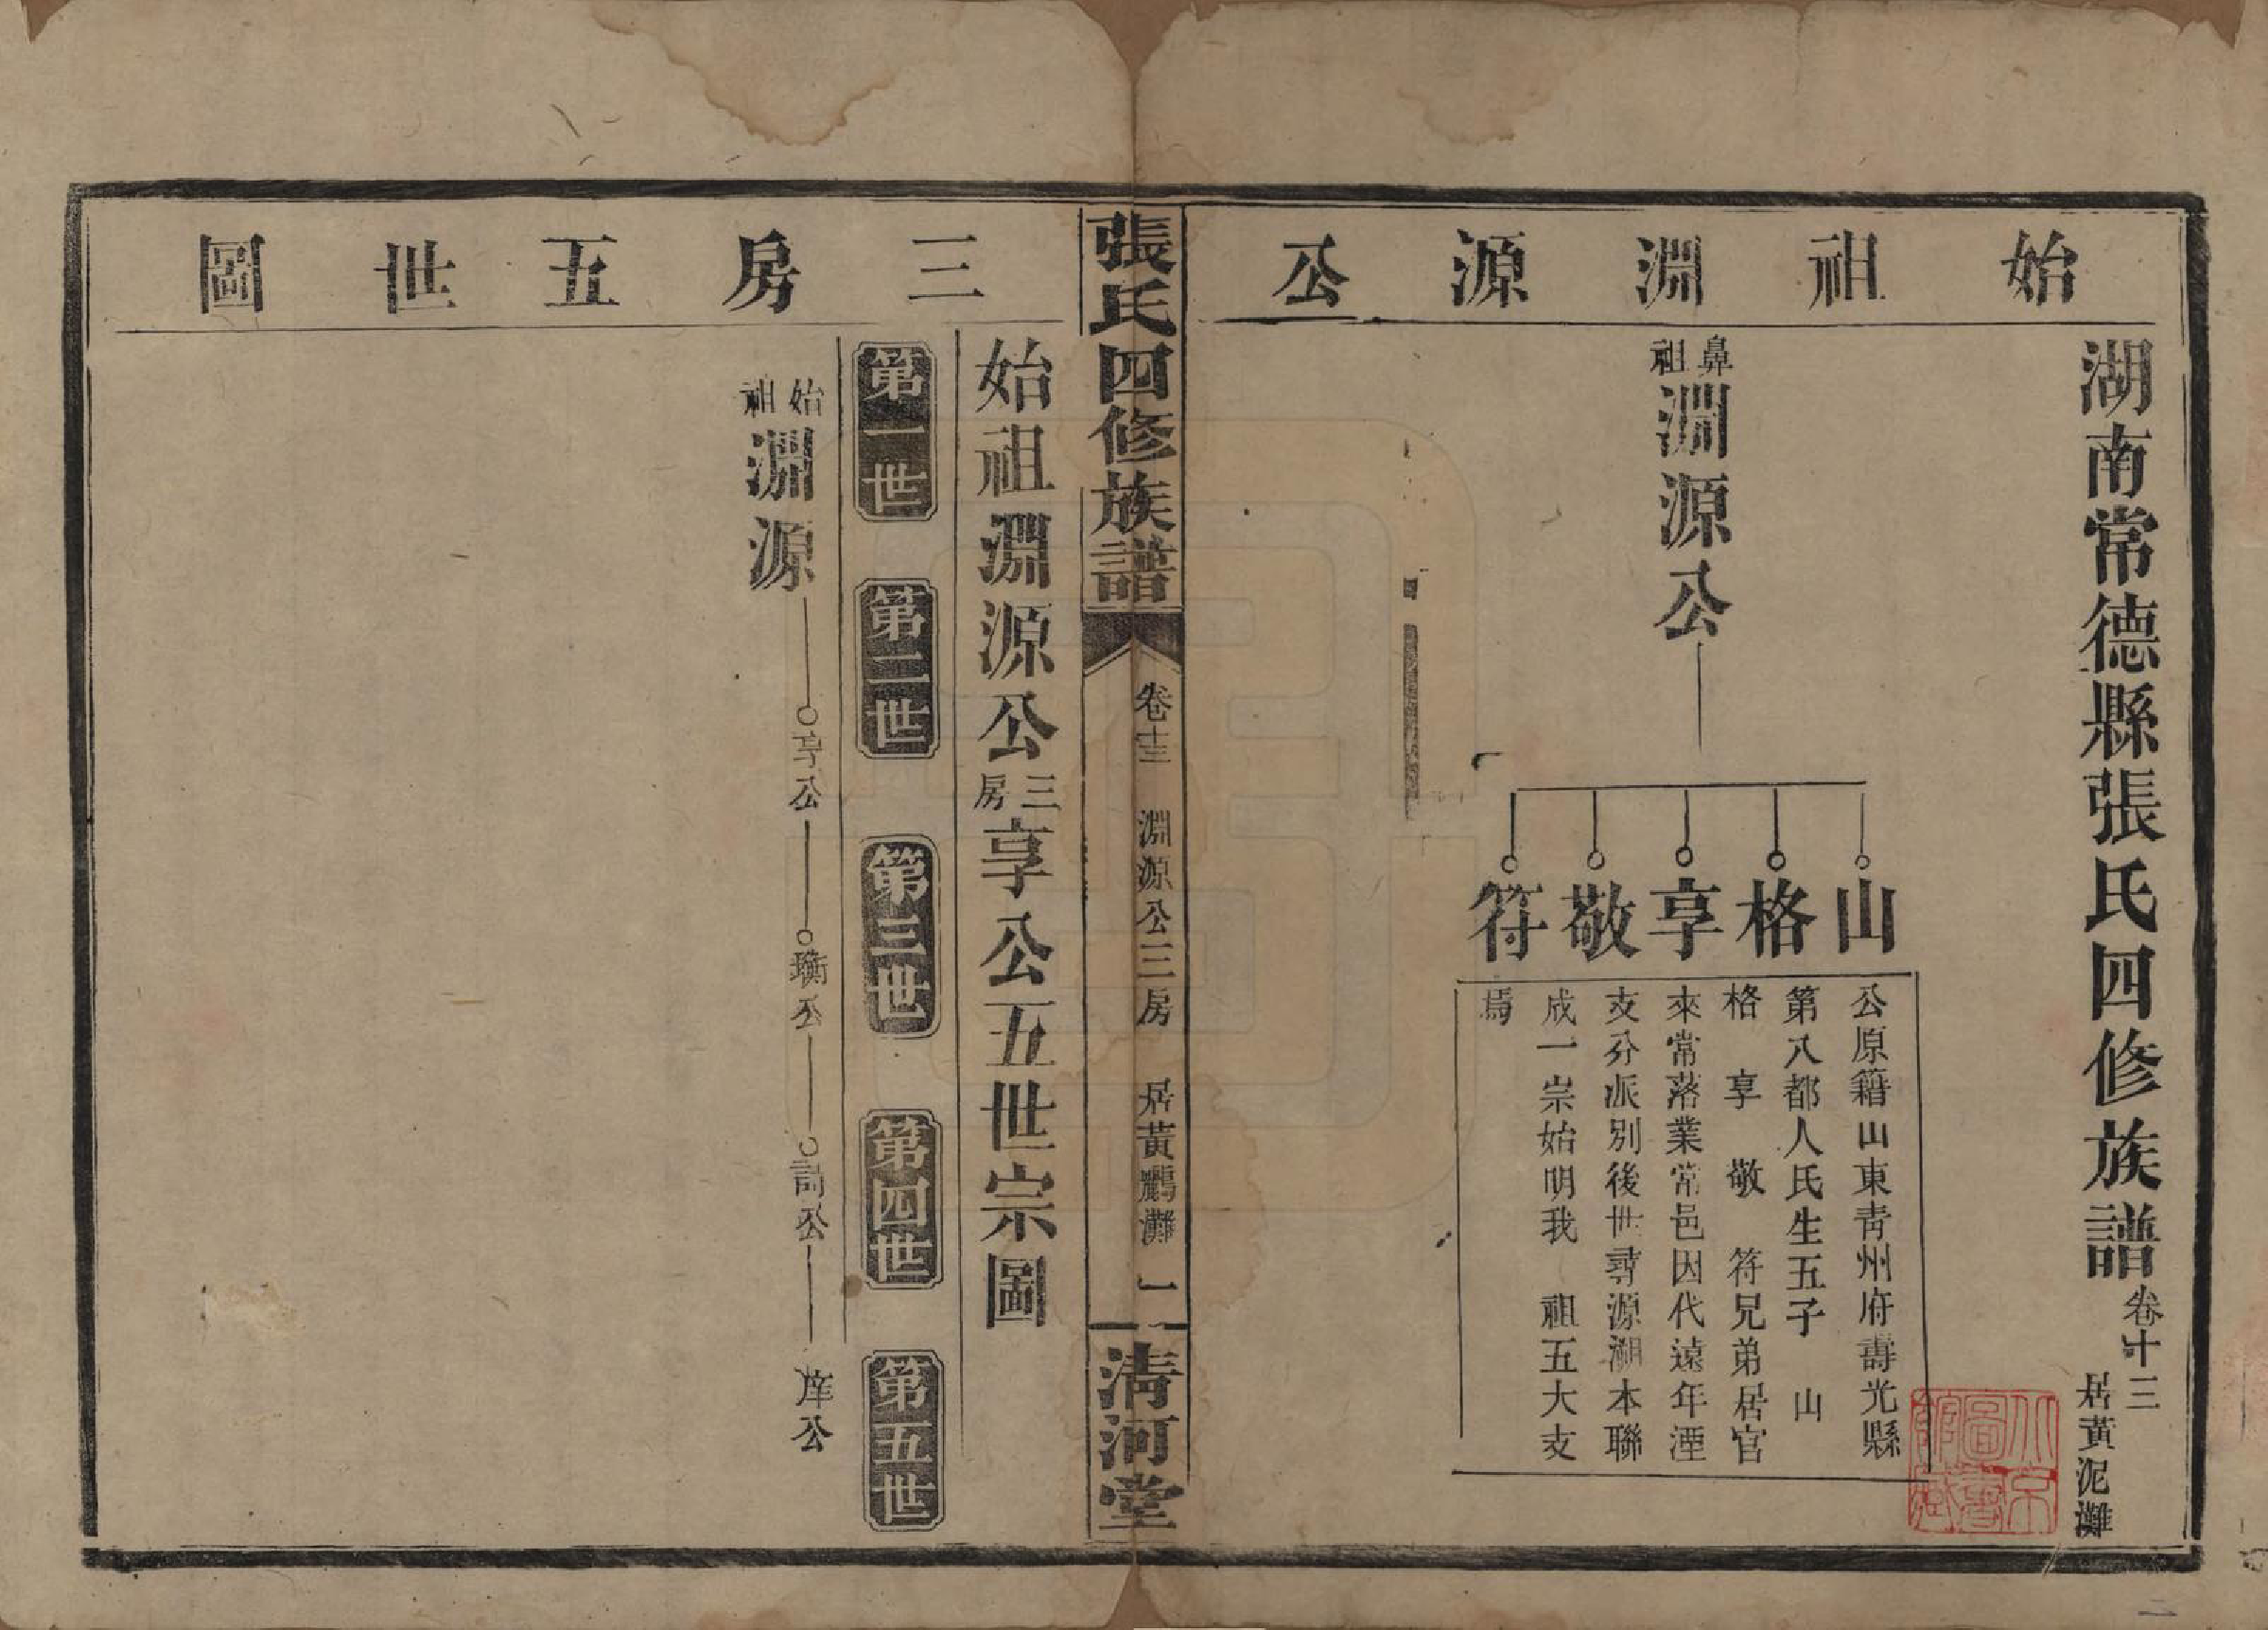 始祖淵源公
湖南常德縣張氏四修族譜卷十三居黃泥灘
鼻祖淵源公
山
格
享
敬
符
公原籍山東靑州府壽光縣
第八都人氏生五子 山
格 享 敬 符兄弟居官
來常落業常邑因代遠年湮
支分派別後世尋源溯本聯
成一崇始明我 祖五大支
焉
北京圖書館藏
張氏四修族譜
卷十三 淵源公三房 居黃鸝灘 一
淸河堂
三房五世圖
始祖淵源公三房享公五世宗圖
第一世 第二世 第三世 第四世 第五世
始祖淵源 享公 公 公 公